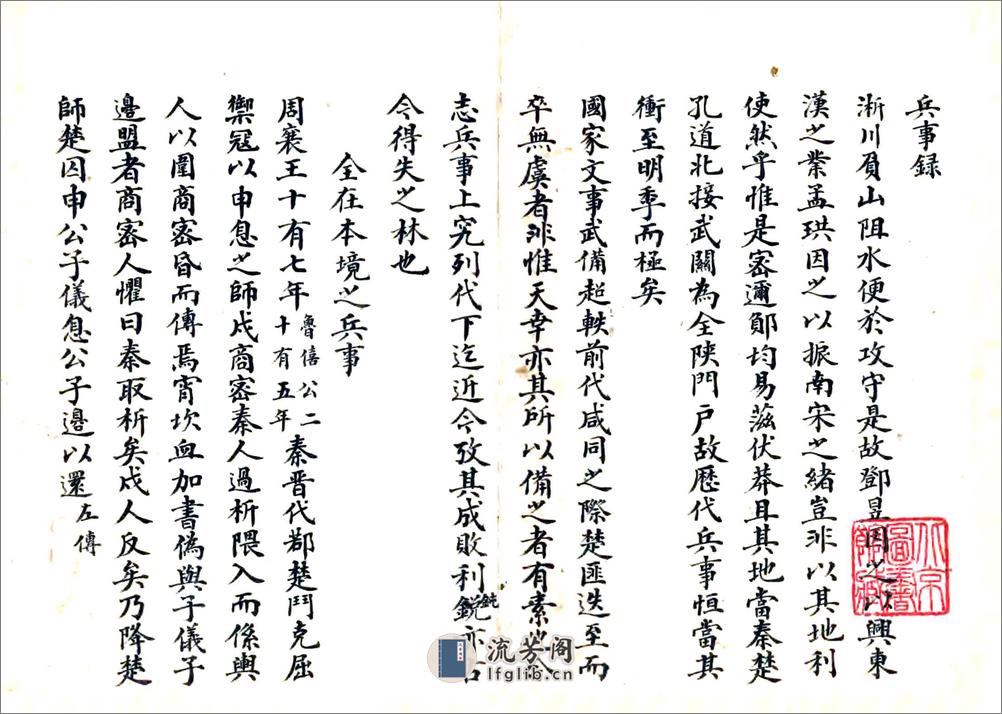 兵事録
淅川負山阻水便於攻守是故鄧昱因之以興東
漢之業孟珙因之以振南宋之緒豈非以其地利
使然乎惟是密邇鄖均易茲伏莽且其地當秦楚
孔道北接武關為全陕門戸故歷代兵事恒當其
衝至明季而極矣
國家文事武備超軼前代咸同之際楚匪迭至而
卒無虞者非惟天幸亦其所以備之者有素也今
志兵事上究列代下迄近今攷其成敗利鈍銳亦古
今得失之林也
全在本境之兵事
周襄王十有七年魯僖公二十有五年秦晉代鄀楚鬥克屈
禦冦以申息之師戍商密秦人過析隈入而係輿
人以圍商密昏而傅焉宵坎血加書偽與子儀子
邊盟者商密人懼曰秦取析矣戍人反矣乃降楚
師楚囚申公子儀息公子邊以還左傳
北京圖書館藏
流芳阁
lfglib.cn